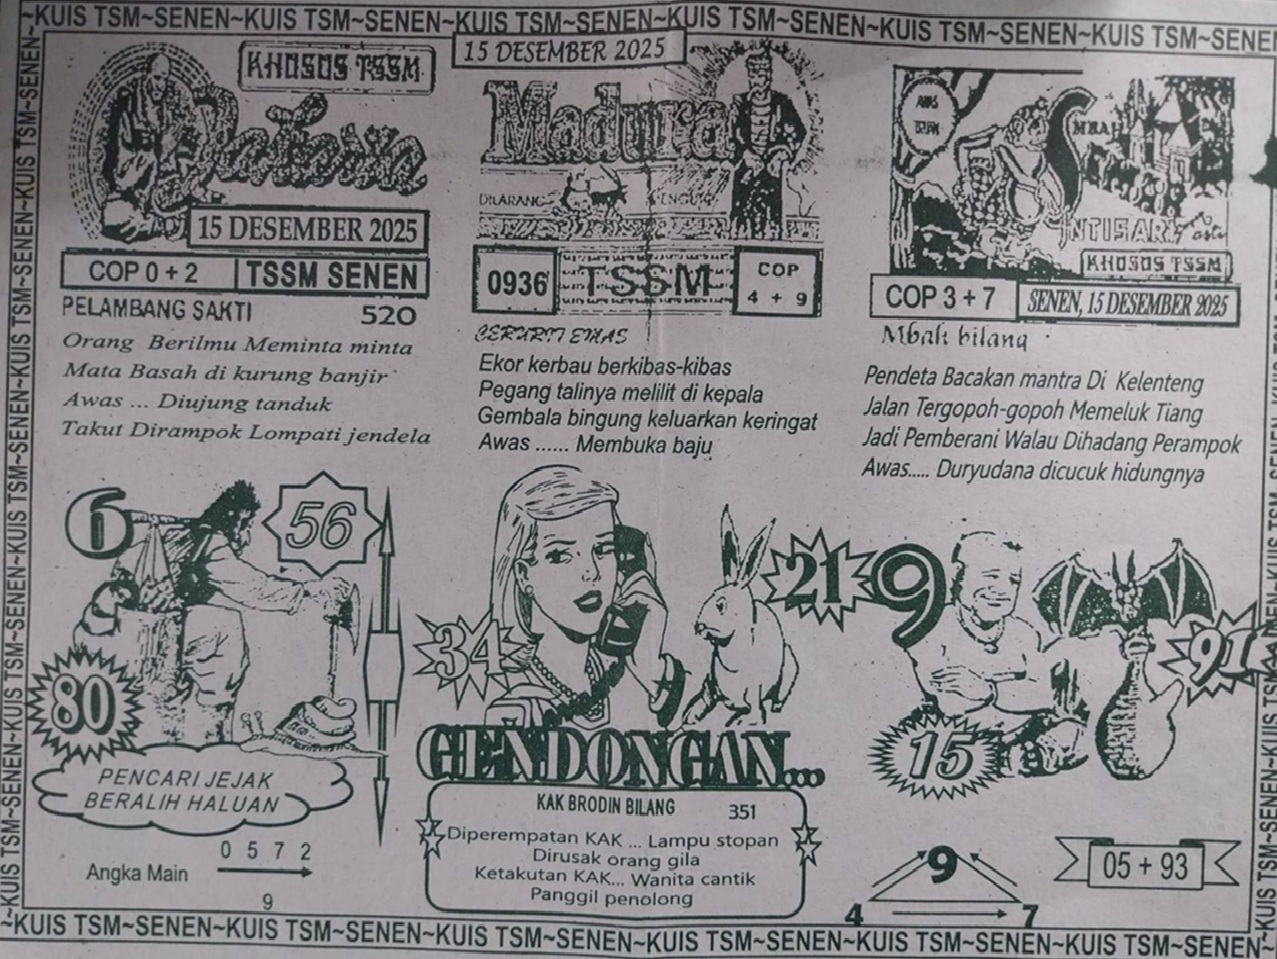 ~KUIS TSM~SENEN~KUIS TSM~SENEN~KUIS TSM~SENEN~KUIS TSM~SENEN~KUIS TSM~SENEN~KUIS TSM~SENEN
KHOSOS TSSM
15 DESEMBER 2025
COP 0 + 2
TSSM SENEN
PELAMBANG SAKTI
520
Orang Berilmu Meminta minta
Mata Basah di kurung banjir
Awas ... Diujung tanduk
Takut Dirampok Lompati jendela
6
56
80
PENCARI JEJAK
BERALIH HALUAN
Angka Main
0 5 7 2
9
15 DESEMBER 2025
Madura
DILARANG
0936
TSSM
COP
4 + 9
CERURIT EMAS
Ekor kerbau berkibas-kibas
Pegang talinya melilit di kepala
Gembala bingung keluarkan keringat
Awas ...... Membuka baju
34
21
GENDONGAN...
KAK BRODIN BILANG
351
Diperempatan KAK ... Lampu stopan
Dirusak orang gila
Ketakutan KAK... Wanita cantik
Panggil penolong
MBAH
INTISARI
KHOSOS TSSM
COP 3 + 7
SENEN, 15 DESEMBER 2025
Mbah bilang
Pendeta Bacakan mantra Di Kelenteng
Jalan Tergopoh-gopoh Memeluk Tiang
Jadi Pemberani Walau Dihadang Perampok
Awas..... Duryudana dicucuk hidungnya
9
91
15
9
4
7
05 + 93
~KUIS TSM~SENEN~KUIS TSM~SENEN~KUIS TSM~SENEN~KUIS TSM~SENEN~KUIS TSM~SENEN~KUIS TSM~SENEN~